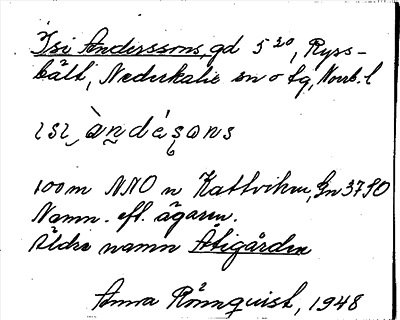 Isi Anderssons, gd 5²⁰, Ryss-
bält, Nederkalix sn o tg, Norrb. l
ısı, àndésons
100 m NNO n Kattviken, Gn 37 SO
Namn. eft. ägaren.
Äldre namn Åtigården
Anna Rönnquist, 1948